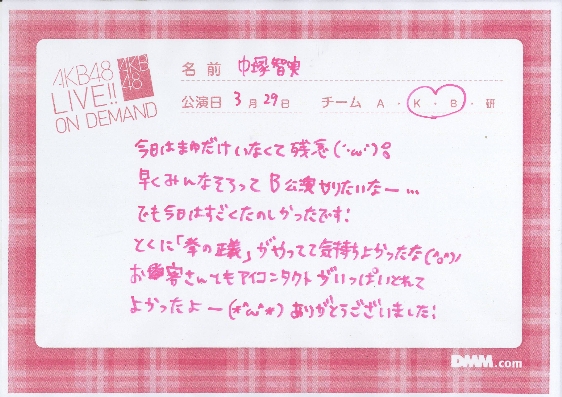 AKB48
LIVE!!
ON DEMAND
AKB
48
名前 中塚智実
公演日 3月29日 チーム A・K・B・研
今日はまゆだけいなくて残念(´・ω・`)。
早くみんなそろってB公演やりたいなー…
でも今日はすごくたのしかったです!
とくに「拳の正義」がやってて気持ちよかったな(^o^)/
お客さんてもアイコンタクトがいっぱいとれて
よかったよー(*^ω^*)ありがとうございました!
DMM.com